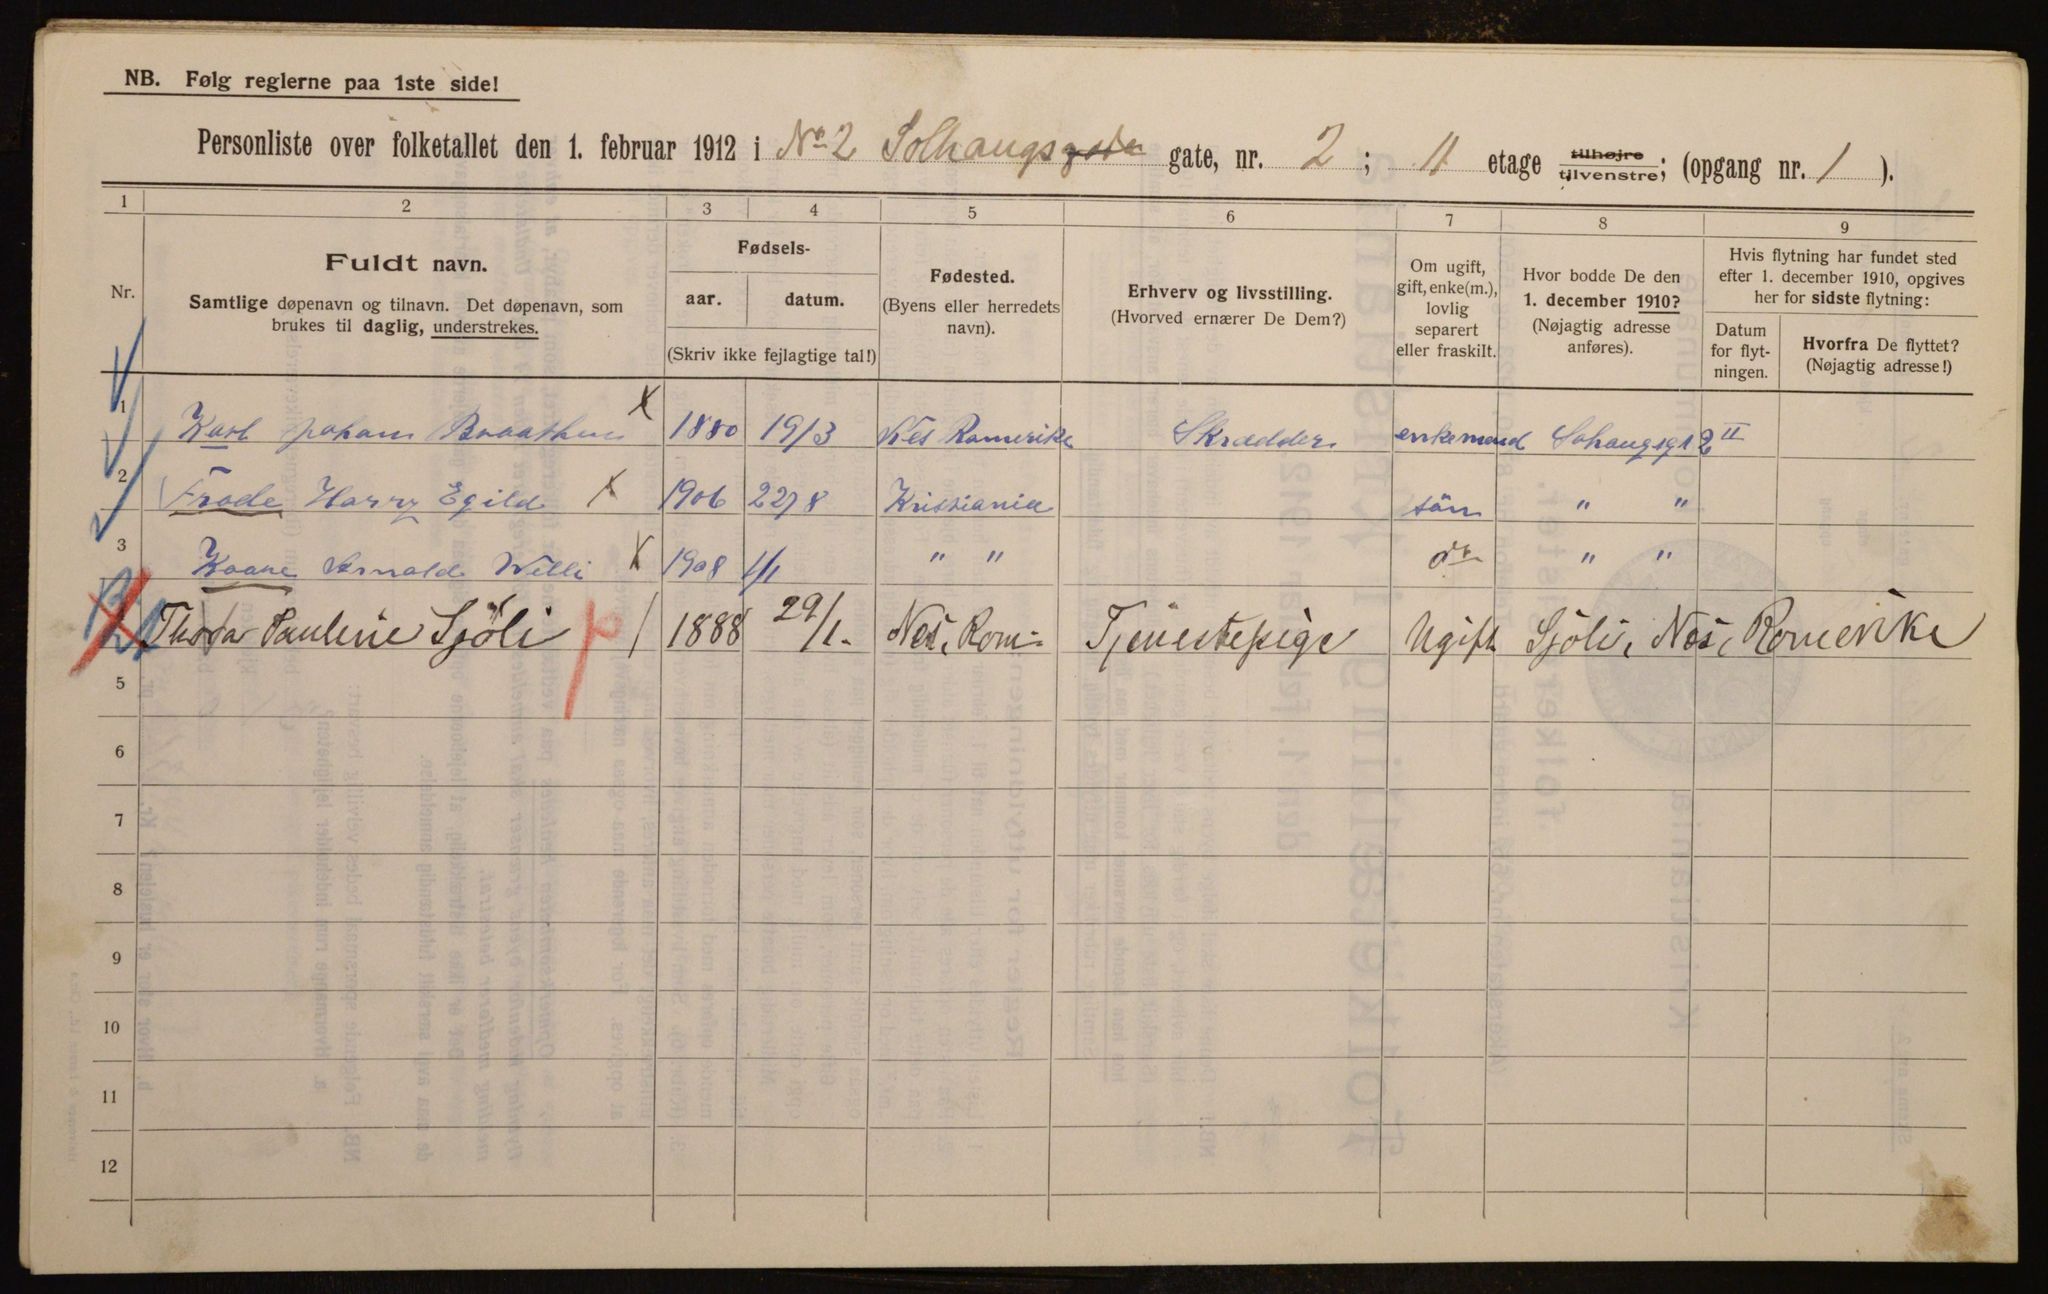 NB. Følg reglerne paa 1ste side!
Personliste over folketallet den 1. februar 1912 i No 2 Solhaugsgata gate, nr. 2; II etage tilhøjre tilvenstre; (opgang nr. 1).
1 2 3 4 5 6 7 8 9
Nr.
Fuldt navn.
Samtlige døpenavn og tilnavn. Det døpenavn, som
brukes til daglig, understrekes.
Fødsels-
aar. datum.
(Skriv ikke fejlagtige tal!)
Fødested.
(Byens eller herredets
navn).
Erhverv og livsstilling.
(Hvorved ernærer De Dem?)
Om ugift,
gift, enke(m.),
lovlig
separert
eller fraskilt.
Hvor bodde De den
1. december 1910?
(Nøjagtig adresse
anføres).
Hvis flytning har fundet sted
efter 1. december 1910, opgives
her for sidste flytning:
Datum
for flyt-
ningen.
Hvorfra De flyttet?
(Nøjagtig adresse!)
1 Karl Johan Braathen X 1880 19/3 Nes Romerike Skrædder enkemand Sohaugsgt 2 II
2 Frode Harry Egild X 1906 22/8 Kristiania sön " "
3 Kaare Arnold Willi X 1908 1/1 " " do " "
Thora Pauline Sjöli 1888 29/1. Nes, Rom- Tjenestepige Ugift Sjöli, Nes, Romerike
5
6
7
8
9
10
11
12